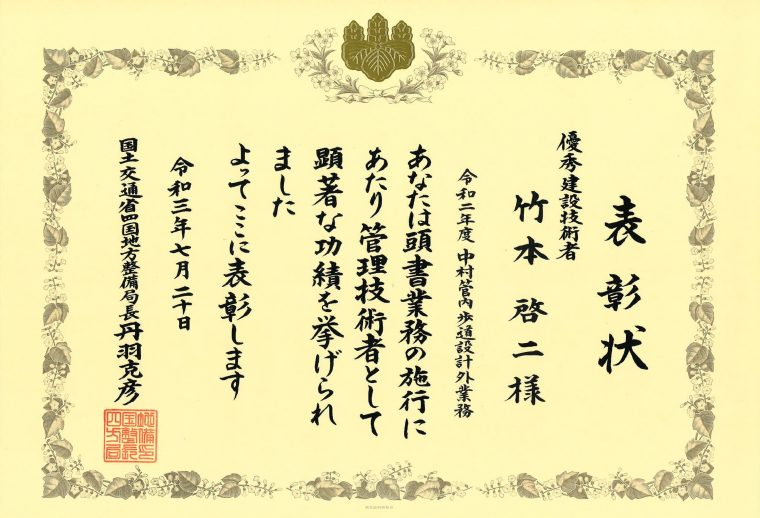 表彰状
優秀建設技術者
竹本啓二様
令和二年度 中村管内歩道設計外業務
あなたは頭書業務の施行に
あたり管理技術者として
顕著な功績を挙げられ
ました
よってここに表彰します
令和三年七月二十日
国土交通省四国地方整備局長 丹羽克彦